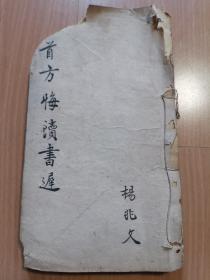 首方悔讀書遲
楊兆文